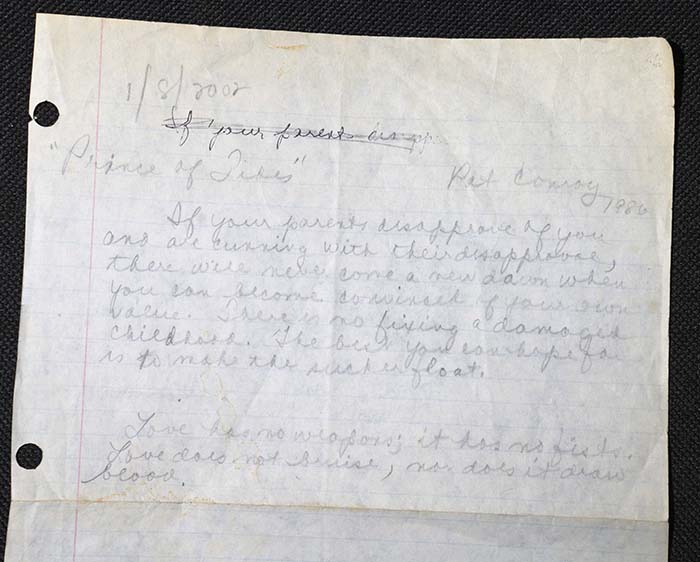 1/8/2002
If your parents disapp
"Prince of Tides"
Pat Conroy
1986
If your parents disapprove of you
and are cunning with their disapproval,
there will never come a new dawn when
you can become convinced of your own
value. There is no fixing a damaged
childhood. The best you can hope for
is to make the sucker float.
Love has no weapons; it has no fists.
Love does not bruise, nor does it draw
blood.